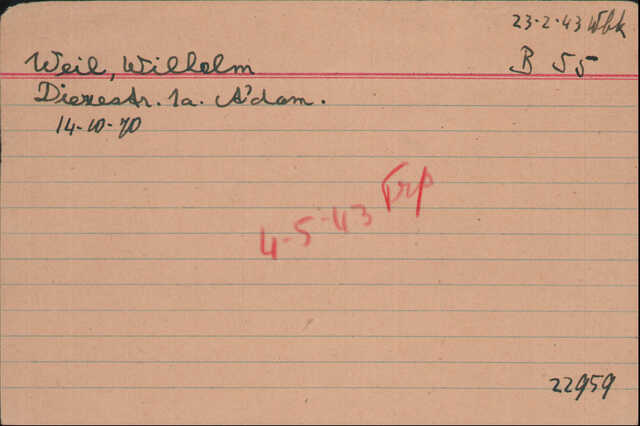 23-2-43 Wbk
Weil, Wilhelm B 55
Diezestr. 1a. A'dam.
14-10-70
4-5-43 Trp
22959